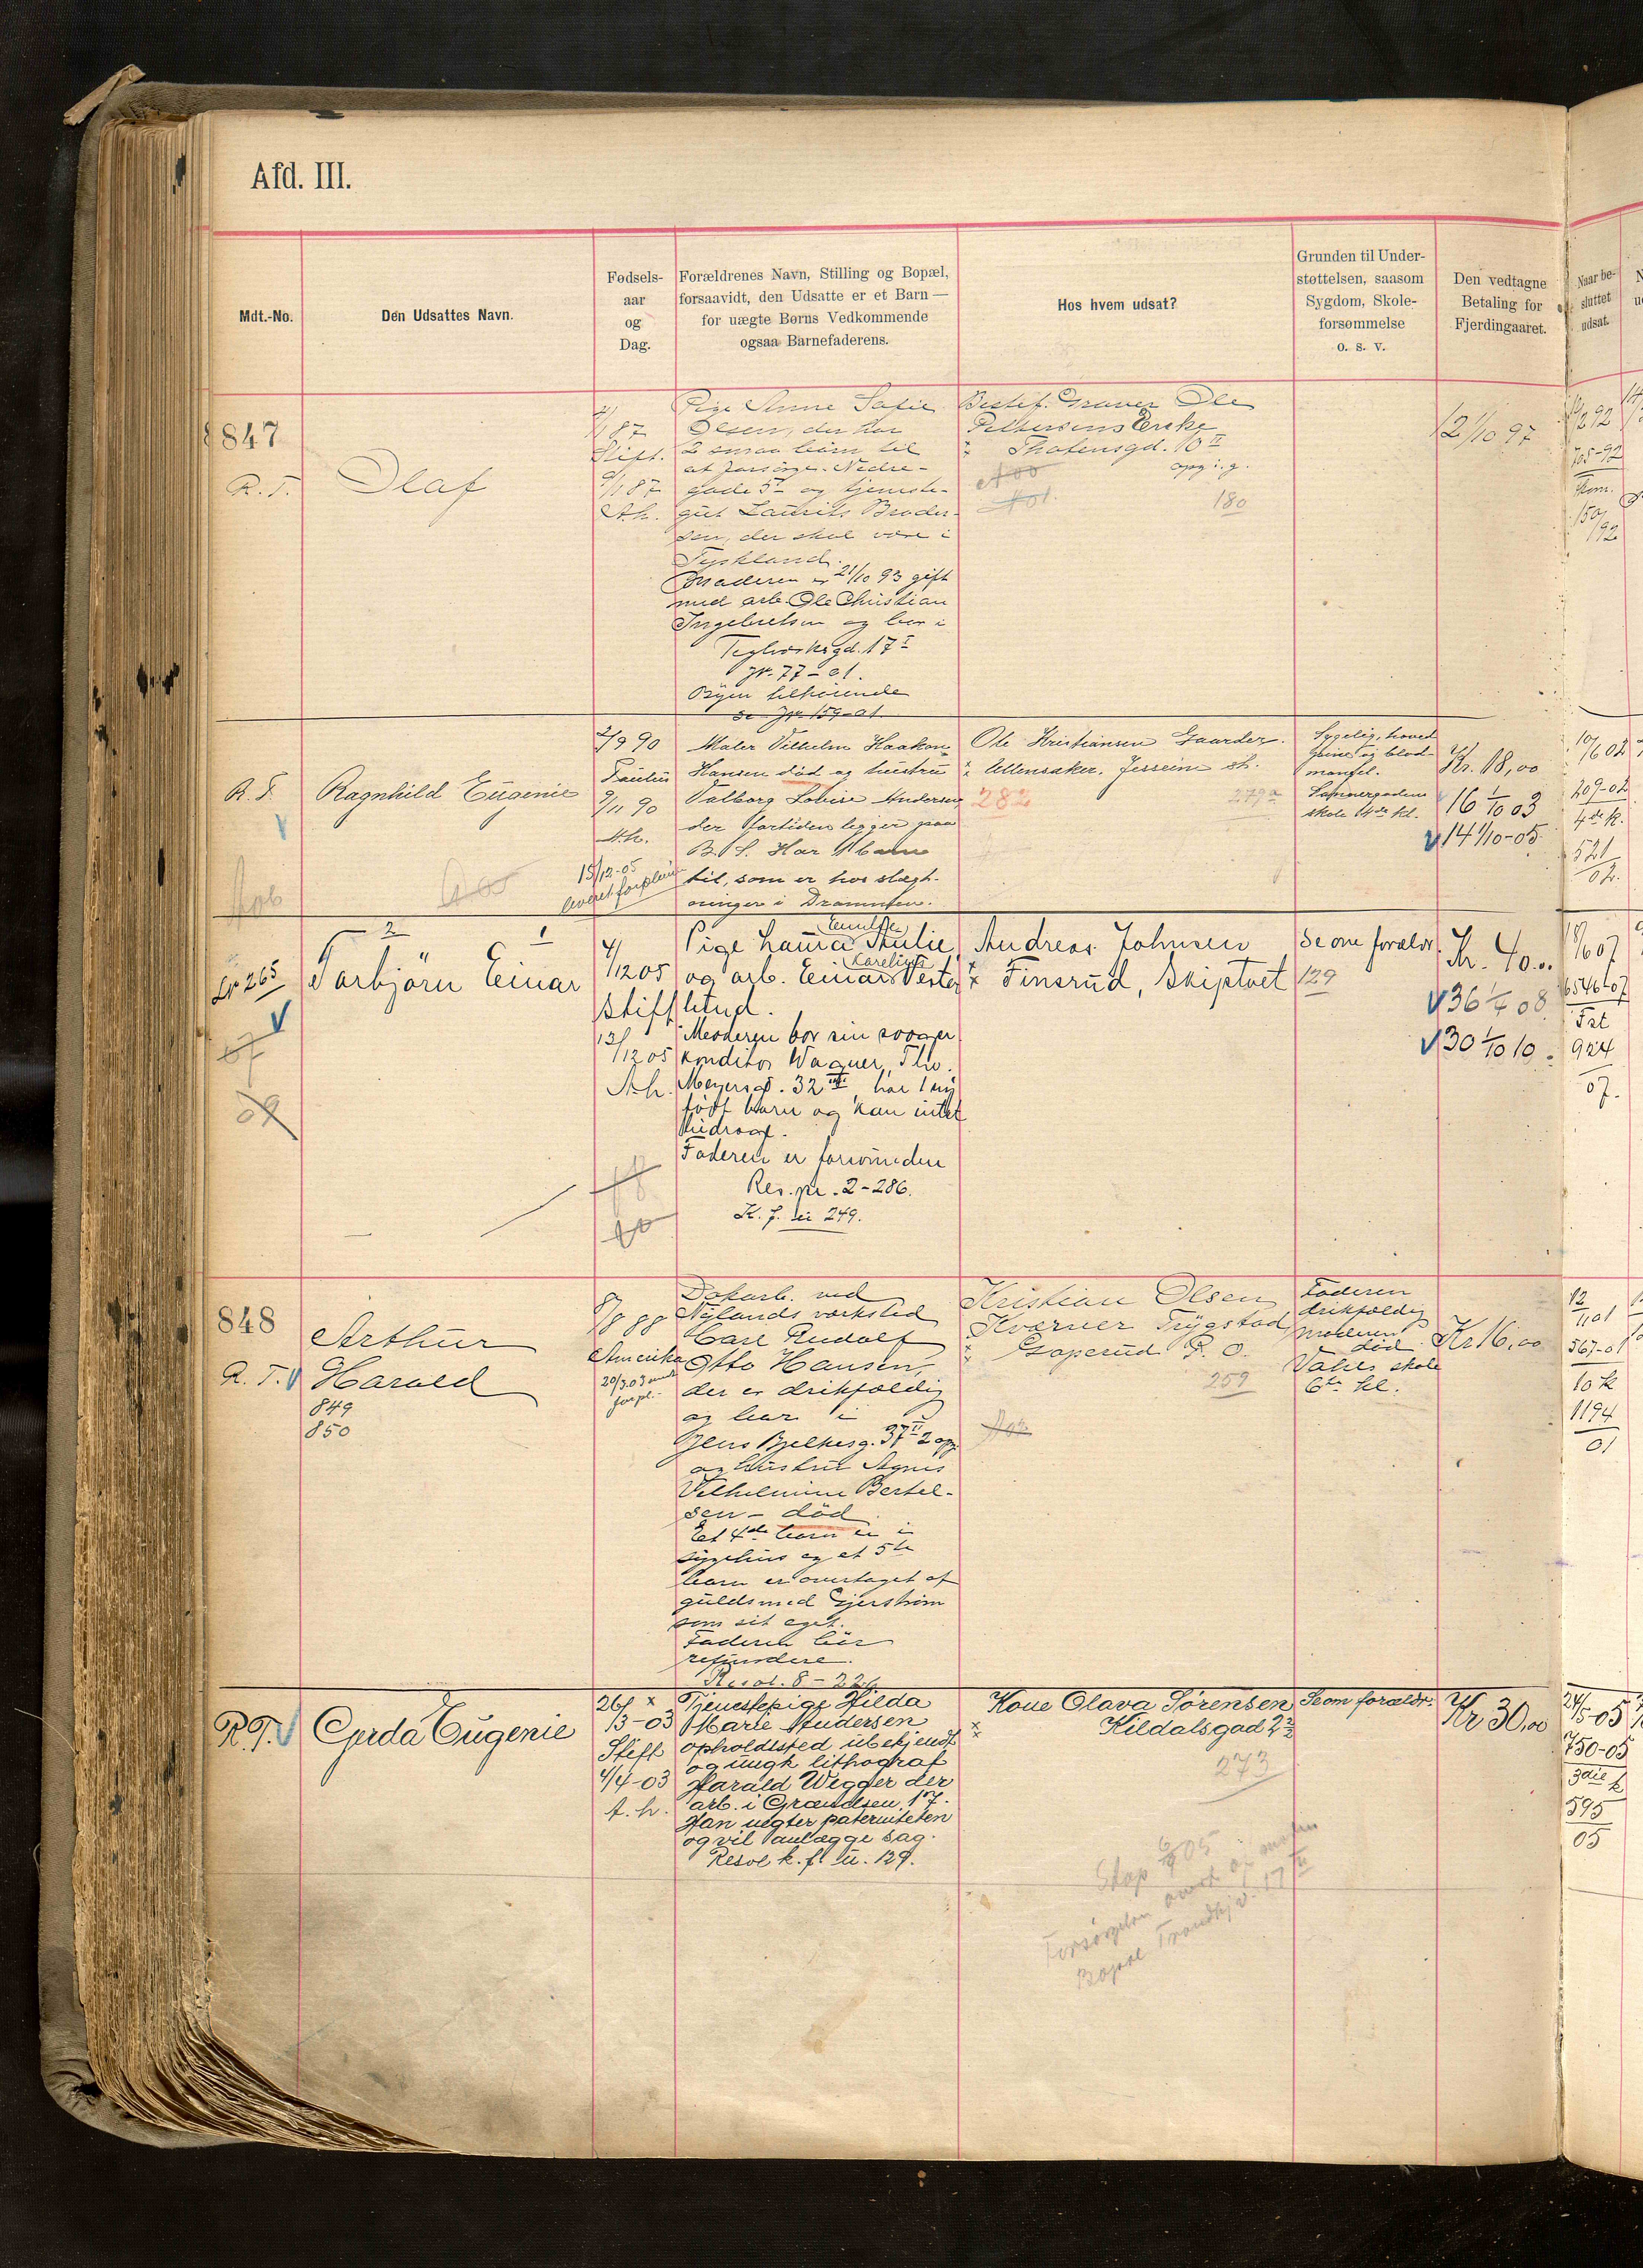 Afd. III.
Mdt.-No.
Den Udsattes Navn.
Fødsels-
aar
og
Dag.
Forældrenes Navn, Stilling og Bopæl,
forsaavidt, den Udsatte er et Barn —
for uægte Børns Vedkommende
ogsaa Barnefaderens.
Hos hvem udsat?
Grunden til Under-
støttelsen, saasom
Sygdom, Skole-
forsømmelse
o. s. v.
Den vedtagne
Betaling for
Fjerdingaaret.
Naar be-
sluttet
udsat.
847
R. T.
Olaf
87
Stift.
87
A.h.
Pige Anne Sofie
Olsen, der har
2 smaa børn til
at forsørge. Nedre-
gade 5 og tjeneste-
gut Laurits Broder-
sen, der skal være i
Tyskland.
Moderen er 21/10 93 gift
med arb. Ole Christian
Ingebretsen og bor i
Teglverksgd. 17 I
Jr. 77-01.
Byen tilhørende
se Jr. 159-01.
Bestef. Graver Ole
Pettersens Enke
Thofensgd. 10 II
opg. i. g.
180
12 1/10 97
R. T.
Ragnhild Eugenie
2/9 90
Paulus
9/11 90
A.h.
15/12-05
Maler Vilhelm Haakon
Hansen død og hustru
Valborg Lovise Andersen
der fortiden ligger paa
B. S. Har 4 barn
til, som er hos slægt-
ninger i Drammen.
Ole Kristiansen Gaarder.
Ullensaker. Jessheim st.
282
279a
Sygelig, hoved
pine og blod-
mangel.
skole 4de kl.
Kr. 18,00
16 1/10 03
14 1/10-05
10/6 02
209-02
4de k.
521
02.
Lr 265
2 1
Torbjörn Einar
4/12 05
Stift
13/12 05
A.h.
Pige Laura Emilie Thulie
og arb. Einar Karelius Vester
lund.
Moderen bor sin svoger
konditor Wagner, Thv.
Meyersgd. 32 III har 1 ny
født barn og kan intet
bidrage.
Faderen er forsvunden
Res. pr. 2-286.
K. f. li 249.
Andreas Johnsen
Finsrud, Skiptvet
Se om foræld.
129
Kr. 40..
36 1/4 08
30 1/10 10.
6546-07
Fat
924
07.
848
R. T.
Arthur
Harald
849
850
7/8 88
Amerika
20/3.03
Dokarb. ved
Nylands værksted
Carl Rudolf
Otto Hansen,
der er drikfældig
og bor i
Jens Bjelkesg. 37 II 2 opg.
og hustru Agnes
Vilhelmine Bertel-
sen - död.
Et 4de barn er i
sygehus og et 5te
barn er overtaget af
guldsmed Gjerström
som sit eget.
Faderen bör
refundere.
Resol. 8-226
Kristian Olsen
Kværner Trygstad
Gaperud P. O.
259
Faderen
drikfældig
moderen
död
Vahls skole
6te kl.
Kr 16,00
12/11 01
567-01
10 k
1194
01
R.T.
Gerda Eugenie
26/3-03
Stift
4/4-03
A.h.
Tjenestepige Hilda
Marie Andersen
opholdssted ubekjendt
og ungk. lithograf
Harald Wegger der
arb. i Grændsen 17.
Han negter paterniteten
og vil anlægge sag.
Resol k. f. u. 129.
Kone Olava Sörensen
Kildalsgad 2 2/2
273
Se om forældr.
Kr 30,00
24/5-05
750-05
3die k
595
05
Stop
Forsørgelsen overt. af moren
Bopæl Trondhj.v. 17